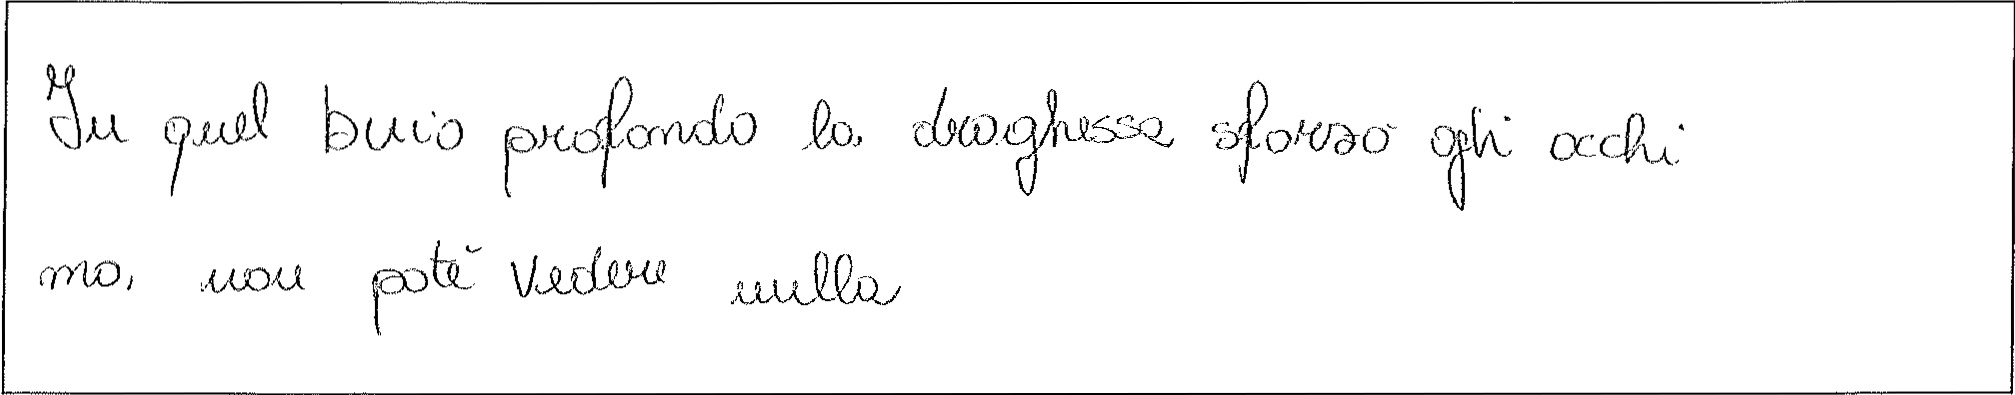 In quel buio profondo la draghessa sforzò gli occhi
ma, non potè vedere nulla